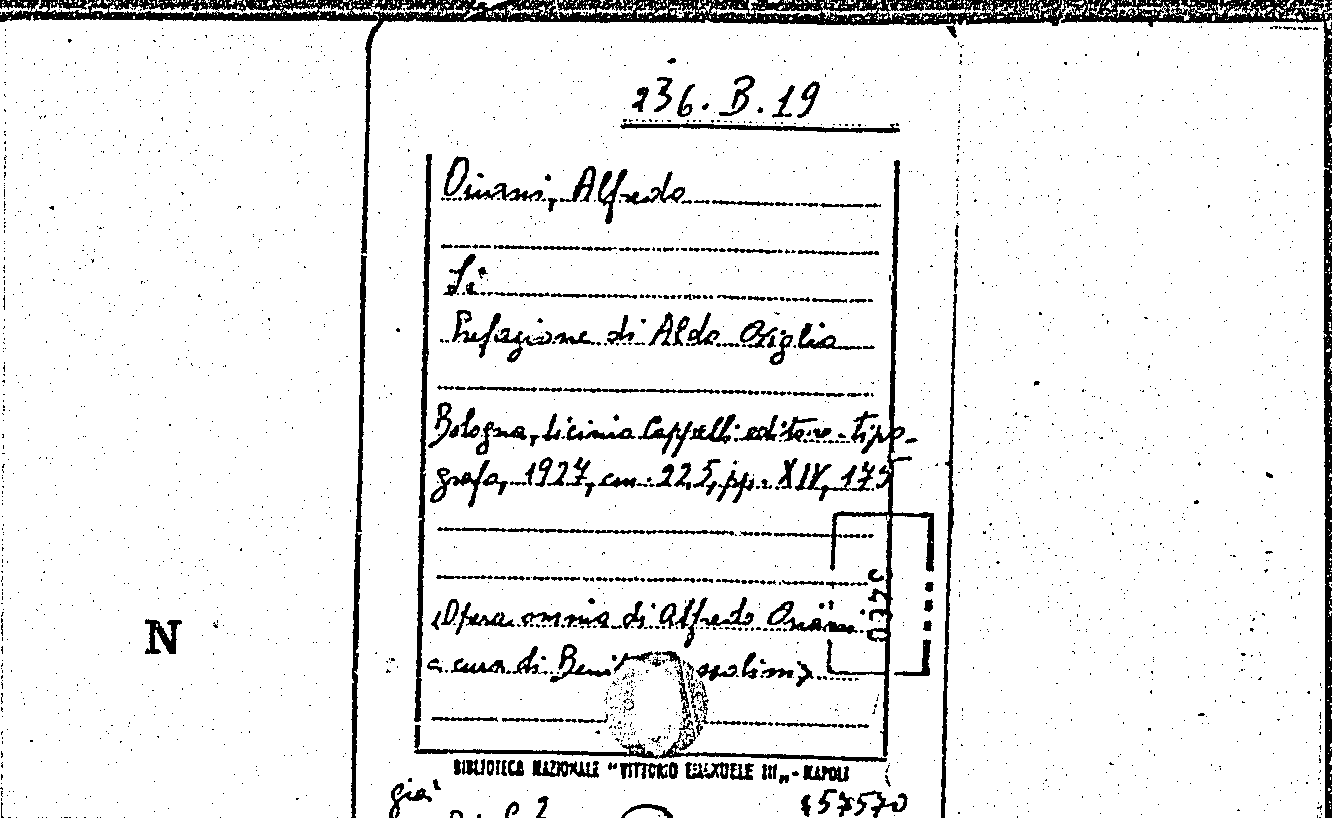 236.B.19
Oriani, Alfredo
Sì
Prefazione di Aldo Oviglio
Bologna, Licinio Cappelli editore-tipo-
grafo, 1927, cm. 22,5, pp. XIV, 175
5420
«Opera omnia di Alfredo Oriani
a cura di Benit ssolini»
N
BIBLIOTECA NAZIONALE "VITTORIO EMANUELE III„ - NAPOLI
già 457570